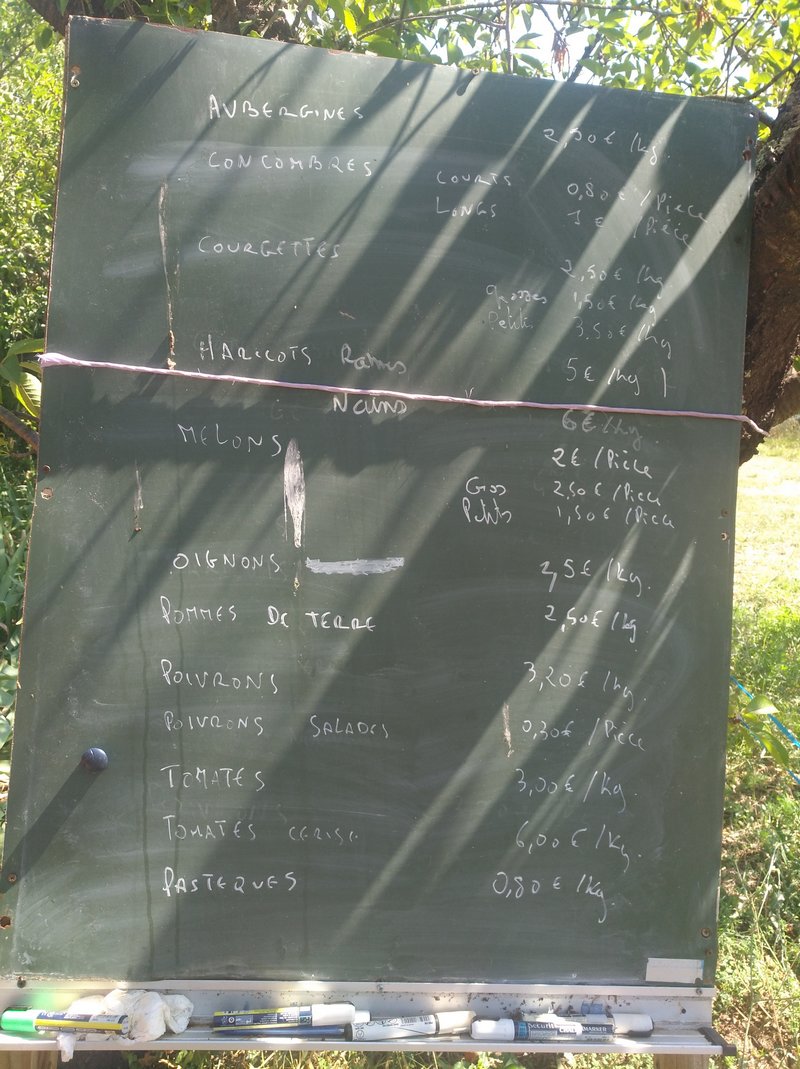 AUBERGINES 2,50€ /kg.
CONCOMBRES
COURTS 0,80€ /Pièce
LONGS 1€ /Pièce
COURGETTES 2,50€ /kg.
grosses 1,50€ /kg
Petits 3.50€ /kg
HARICOTS Rames 5€ /kg
Nains 6€ /kg
MELONS 2€ /Pièce
Gros 2,50€ /Pièce
Petits 1,50€ /Pièce
OIGNONS /kg.
POMMES DE TERRE 2,50€ /kg.
POIVRONS 3,20€ /kg.
POIVRONS SALADES 0,30€ /Pièce
TOMATES 3,00€ /kg.
TOMATES CERISE 6,00€ /kg.
PASTEQUES 0,80€ /kg
CHALKMARKER